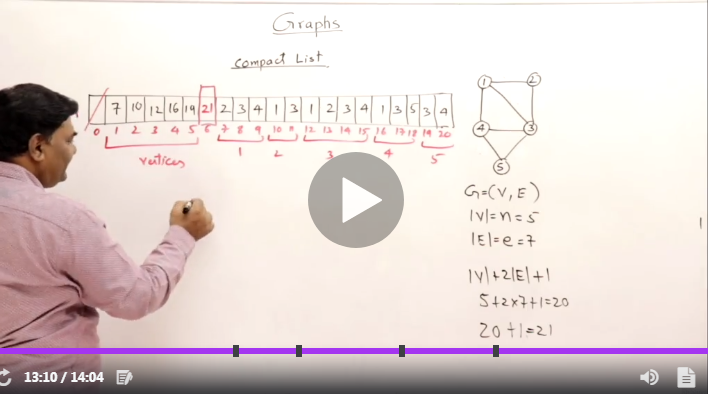 Graphs
Compact List
7 10 12 16 19 21 2 3 4 1 3 1 2 3 4 1 3 5 3 4
0 1 2 3 4 5 6 7 8 9 10 11 12 13 14 15 16 17 18 19 20
vertices 1 2 3 4 5
1 2
4 3
5
G=(V, E)
|V|=n=5
|E|=e=7
|V|+2|E|+1
5+2x7+1=20
20+1=21
13:10 / 14:04